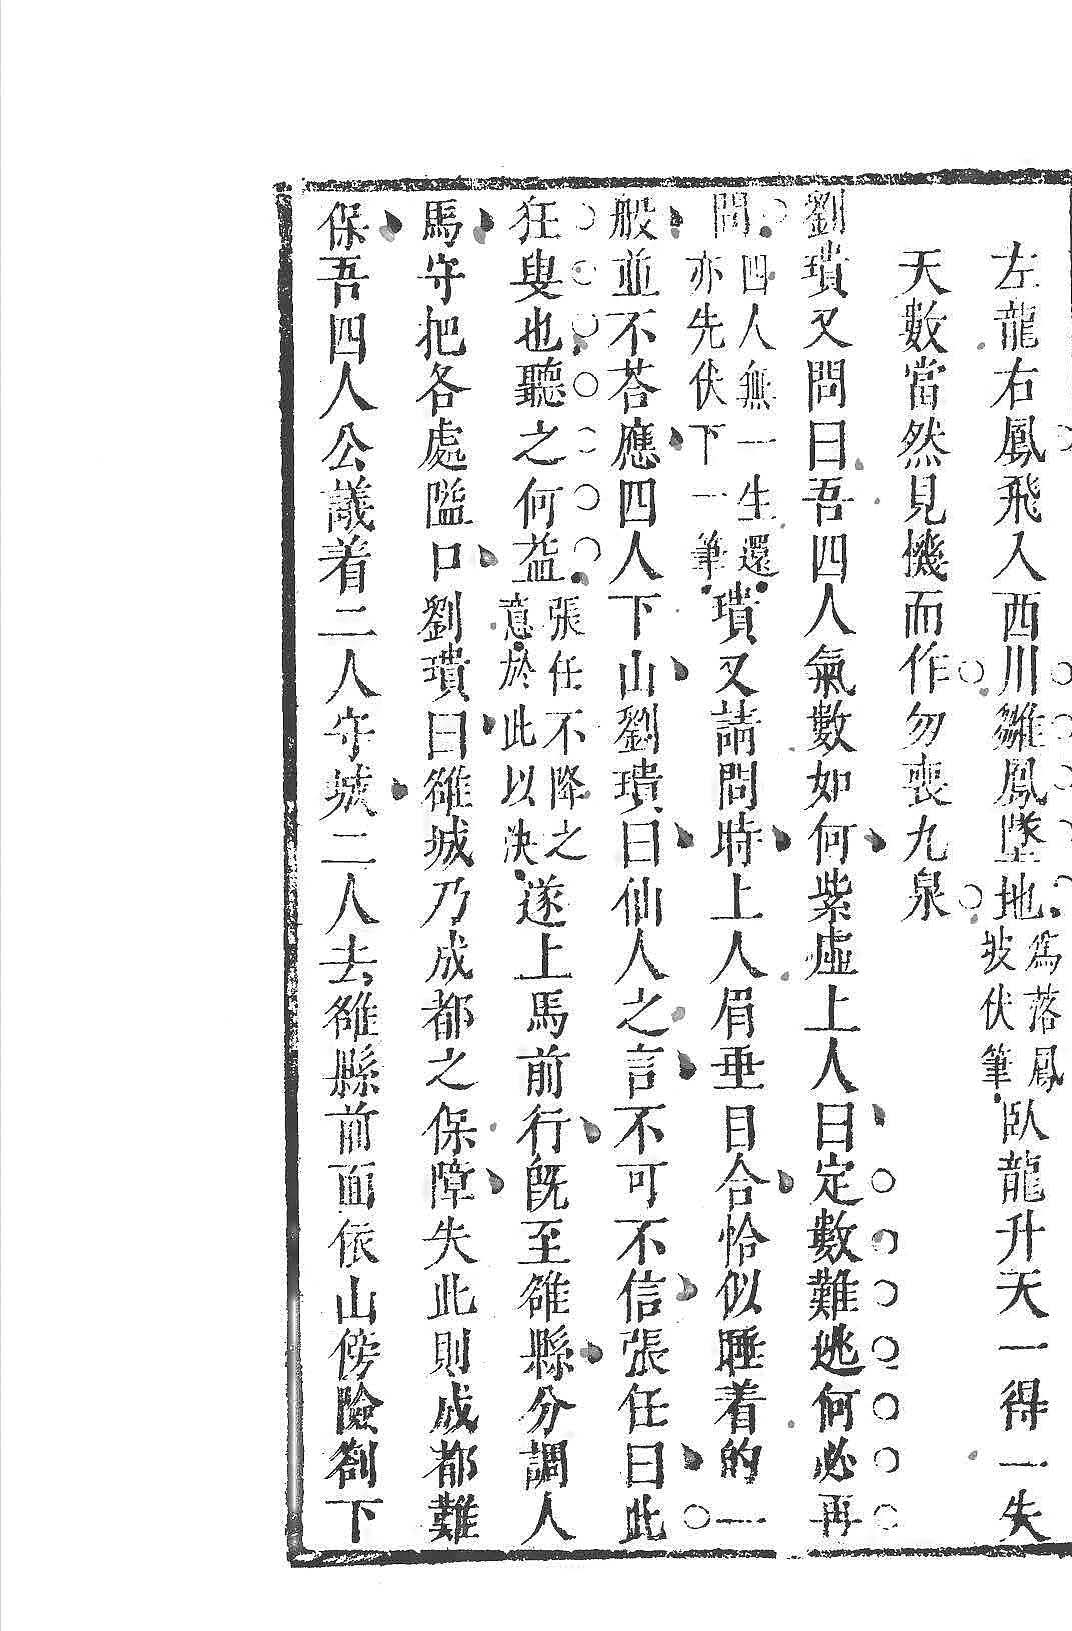 左龍右鳳飛入西川雛鳳墜地爲落鳳坡伏筆臥龍升天一得一失
天數當然見機而作勿喪九泉
劉璝又問曰吾四人氣數如何紫虛上人曰定數難逃何必再
問四人無一生還亦先伏下一筆璝又請問時上人眉垂目合恰似睡着的一
般並不荅應四人下山劉璝曰仙人之言不可不信張任曰此
狂叟也聽之何益張任不降之意於此以決遂上馬前行旣至雒縣分調人
馬守把各處隘口劉璝曰雒城乃成都之保障失此則成都難
保吾四人公議着二人守城二人去雒縣前面依山傍險劄下